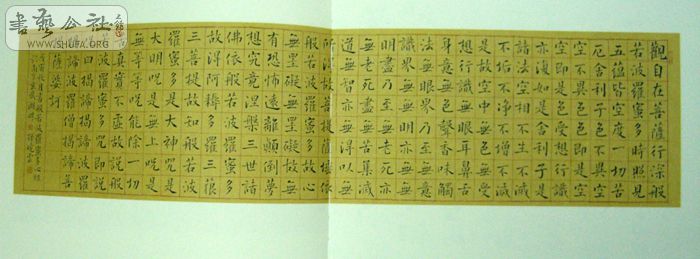 書藝公社
WWW.SHUFA.ORG
觀自在菩薩行深般
若波羅蜜多時照見
五蘊皆空度一切苦
厄舍利子色不異空
空不異色色即是空
空即是色受想行識
亦復如是舍利子是
諸法空相不生不滅
不垢不淨不增不減
是故空中無色無受
想行識無眼耳鼻舌
身意無色聲香味觸
法無眼界乃至無意
識界無無明亦無無
明盡乃至無老死亦
無老死盡無苦集滅
道無智亦無得以無
所得故菩提薩埵依
般若波羅蜜多故心
無罣礙無罣礙故無
有恐怖遠離顛倒夢
想究竟涅槃三世諸
佛依般若波羅蜜多
故得阿耨多羅三藐
三菩提故知般若波
羅蜜多是大神呪是
大明呪是無上呪是
無等等呪能除一切
苦真實不虛故說般
若波羅蜜多呪即說
呪曰揭諦揭諦波羅
揭諦波羅僧揭諦菩
提薩婆訶
般若波羅蜜多心經